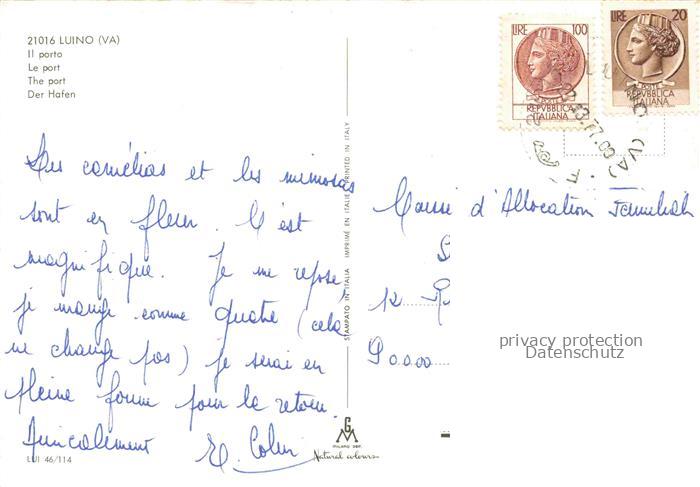 21016 LUINO (VA)
Il porto
Le port
The port
Der Hafen
LIRE 100
POSTE
REPVBBLICA
ITALIANA
LIRE 20
POSTE
REPVBBLICA
ITALIANA
Les camélias et les mimosas
sont en fleur. C'est
magnifique. Je me repose,
je mange comme quatre (cela
ne change pas) je serai en
pleine forme pour le retour.
Amicalement
LUI 46/114
STAMPATO IN ITALIA IMPRIMÉ EN ITALIE PRINTED IN ITALY
MILANO
Natural colours
Caisse d'Allocation Familiale
12
90000
privacy protection
Datenschutz